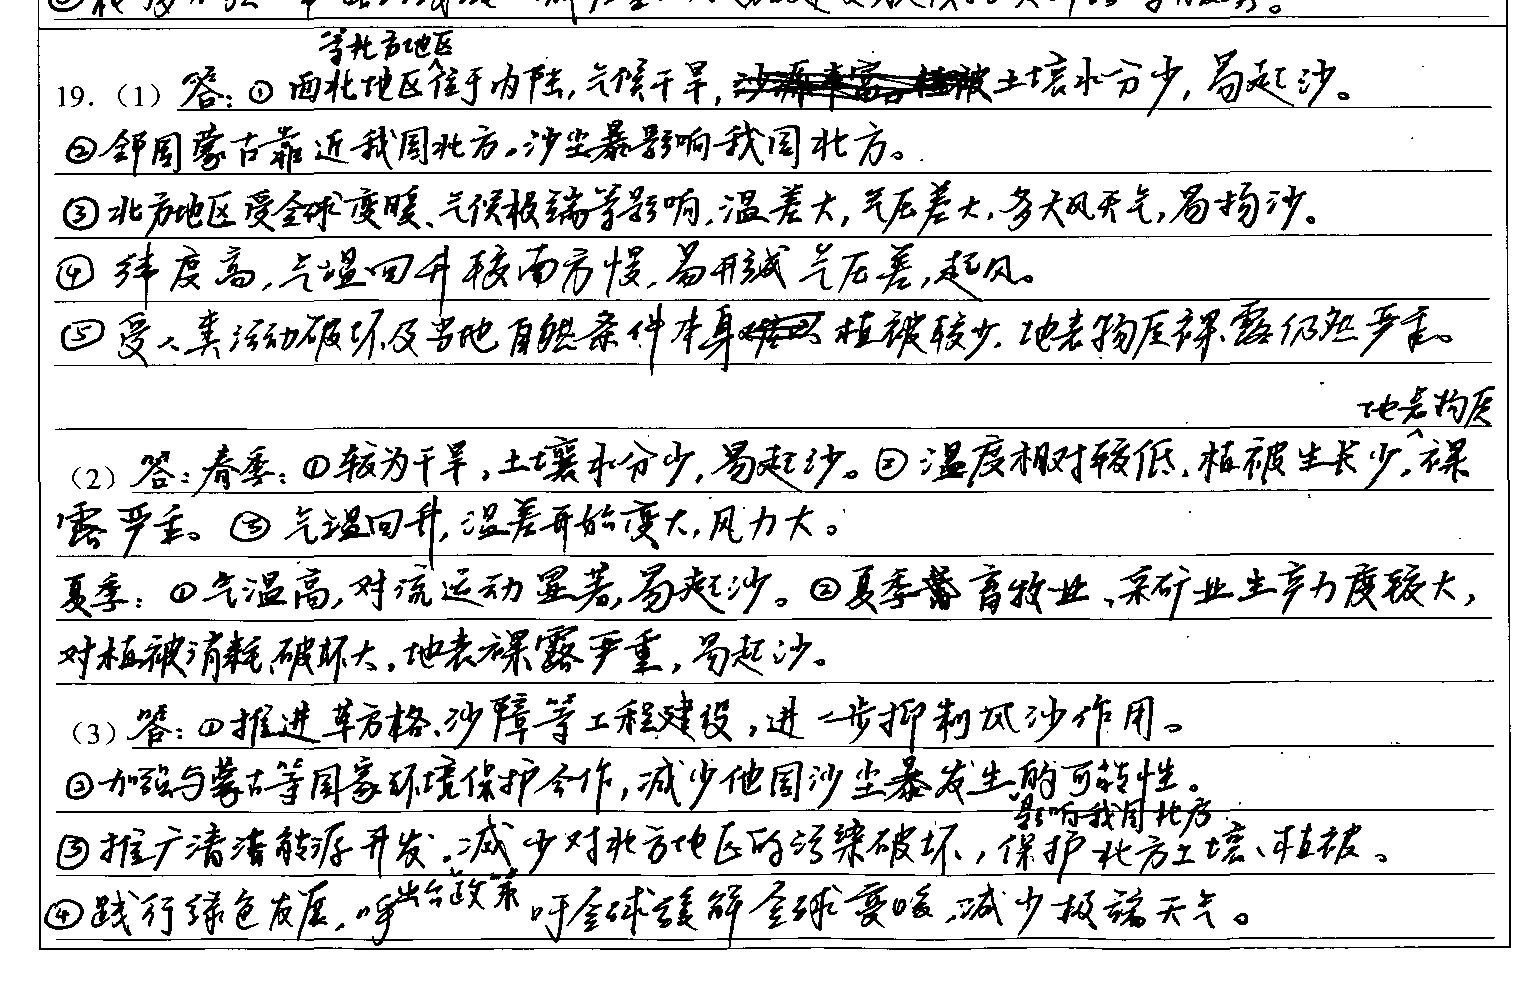 等北方地区
19.（1）答：①西北地区位于内陆，气候干旱，土壤水分少，易起沙。
②邻国蒙古靠近我国北方。沙尘暴影响我国北方。
③北方地区受全球变暖、气候极端等影响，温差大，气压差大，多大风天气，易扬沙。
④纬度高，气温回升较南方慢，易形成气压差，起风。
⑤受人类活动破坏及当地自然条件本身植被较少，地表物质裸露仍然严重。
地表物质
（2）答：春季：①较为干旱，土壤水分少，易起沙。②温度相对较低，植被生长少，裸
露严重。③气温回升，温差开始变大，风力大。
夏季：①气温高，对流运动显著，易起沙。②夏季畜牧业、采矿业生产力度较大，
对植被消耗破坏大，地表裸露严重，易起沙。
（3）答：①推进草方格、沙障等工程建设，进一步抑制风沙作用。
②加强与蒙古等国家环境保护合作，减少他国沙尘暴发生的可能性。
影响我国北方
③推广清洁能源开发，减少对北方地区的污染破坏，保护北方土壤、植被。
出台政策
④践行绿色发展，呼吁全球缓解全球变暖，减少极端天气。